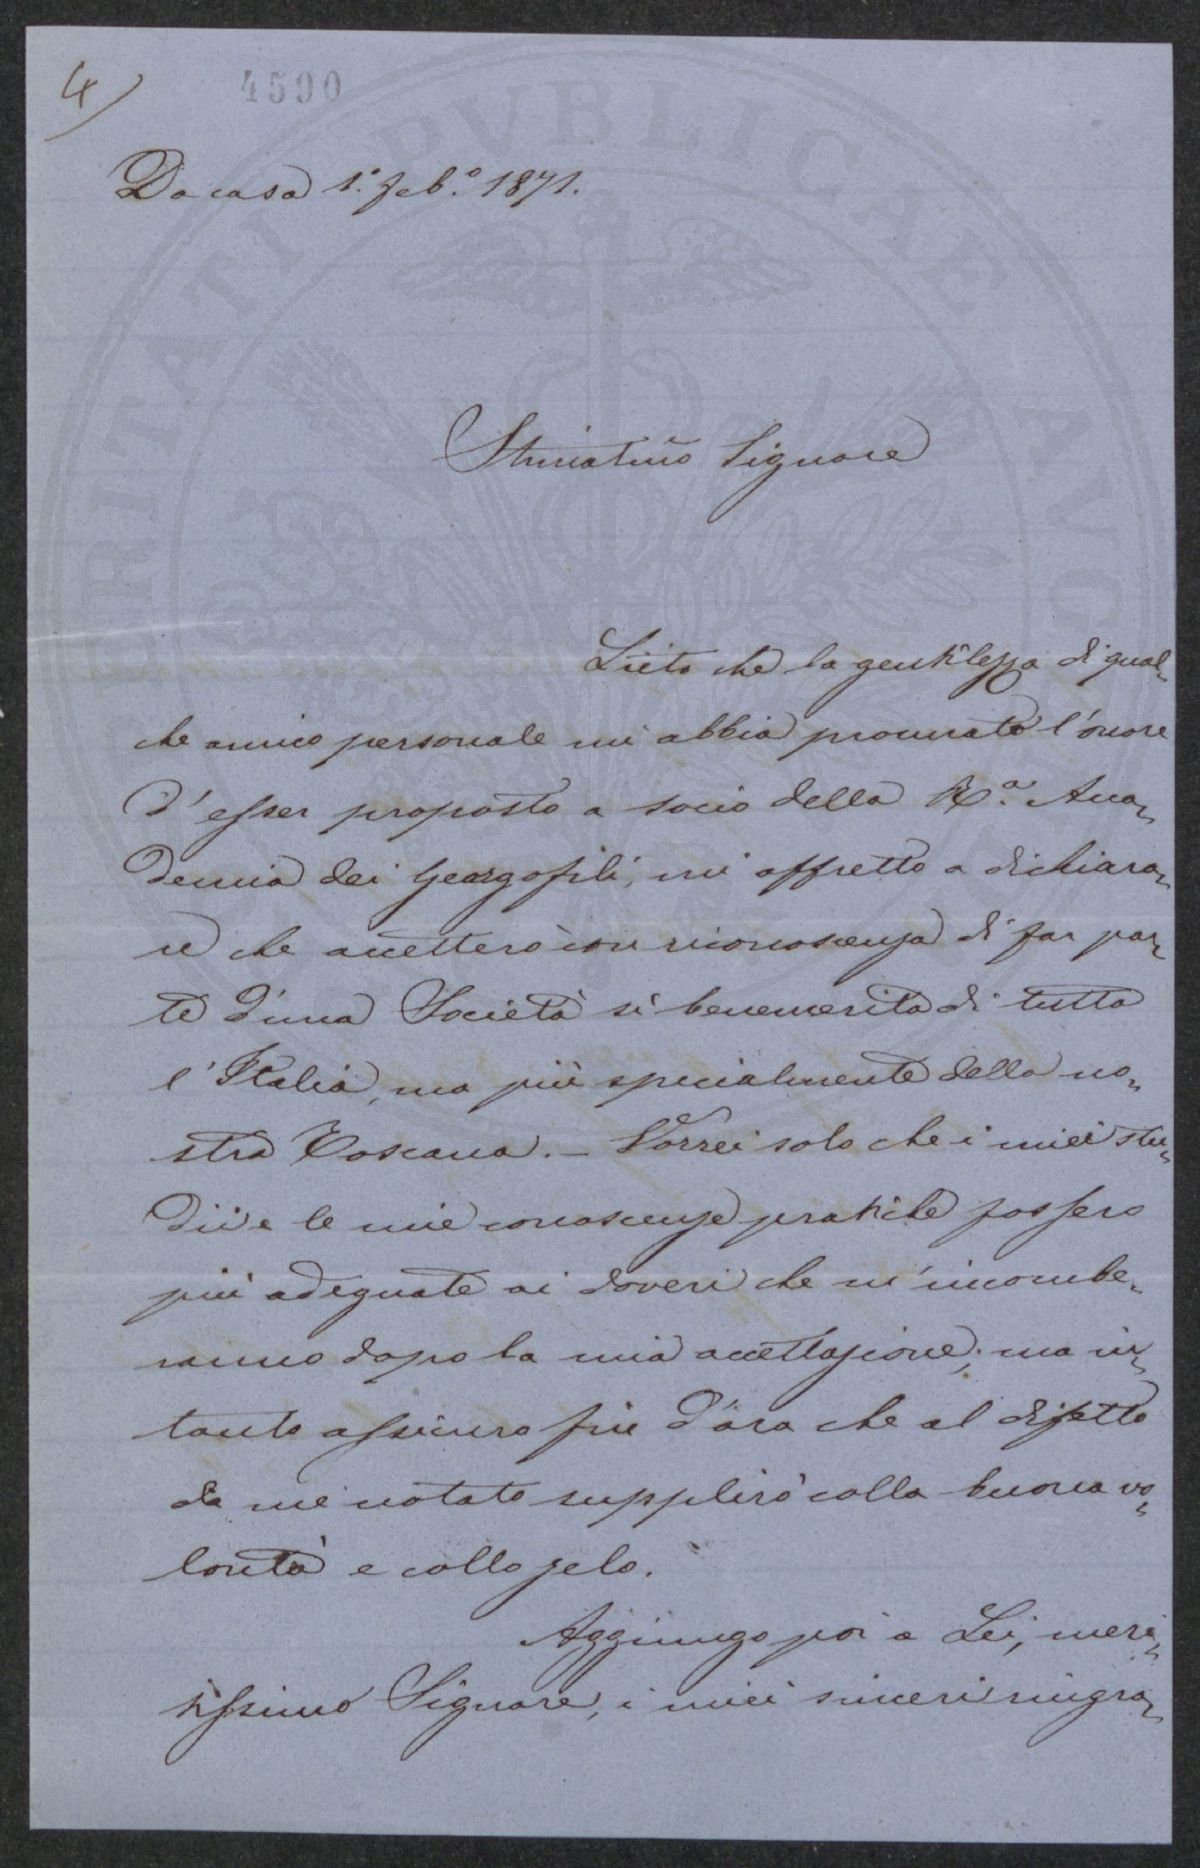 4)
4590
Da casa 1.° Feb.° 1871.
Stimatm̃o Signore
Lieto che la gentilezza di qual-
che amico personale mi abbia procurato l'onore
d'esser proposto a socio della R.a Acca-
demia dei Georgofili, mi affretto a dichiara-
re che accetterò con riconoscenza di far par-
te d'una Società sì benemerita di tutta
l'Italia, ma più specialmente della no-
stra Toscana. — Vorrei solo che i miei stu-
dii e le mie conoscenze pratiche fossero
più adeguate ai doveri che m'incombe-
ranno dopo la mia accettazione; ma in-
tanto assicuro fin d'ora che al difetto
da me notato supplirò colla buona vo-
lontà e collo zelo.
Aggiungo poi a Lei, meri-
tissimo Signore, i miei sinceri ringra-
PROSPERITATI PVBLICAE AVGENDAE